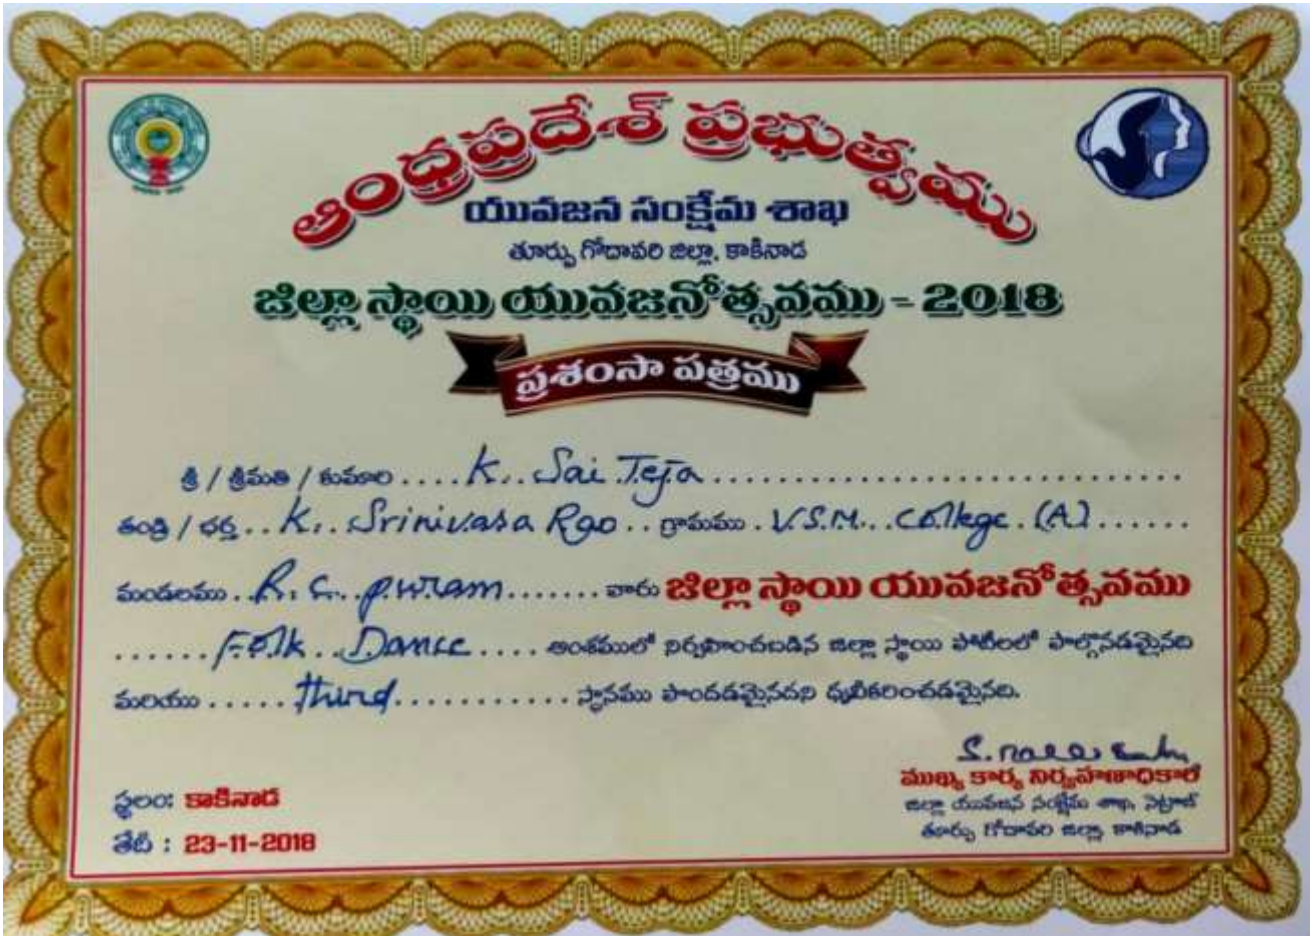 ఆంధ్రప్రదేశ్ ప్రభుత్వము
యువజన సంక్షేమ శాఖ
తూర్పు గోదావరి జిల్లా, కాకినాడ
జిల్లా స్థాయి యువజనోత్సవము - 2018
ప్రశంసా పత్రము
శ్రీ / శ్రీమతి / కుమారి .... K.. Sai Teja ..............................
తండ్రి / భర్త .. K.. Srinivasa Rao .. గ్రామము . V.S.M... College . (A) ......
మండలము . R. C.. puram ....... వారు జిల్లా స్థాయి యువజనోత్సవము
...... Folk .. Dance .... అంశములో నిర్వహించబడిన జిల్లా స్థాయి పోటీలలో పాల్గొనడమైనది
మరియు ..... third ............ స్థానము పొందడమైనదని ధృవీకరించడమైనది.
ముఖ్య కార్య నిర్వహణాధికారి
స్థలం: కాకినాడ
జిల్లా యువజన సంక్షేమ శాఖ, సెట్రాజ్
తేదీ : 23-11-2018
తూర్పు గోదావరి జిల్లా, కాకినాడ